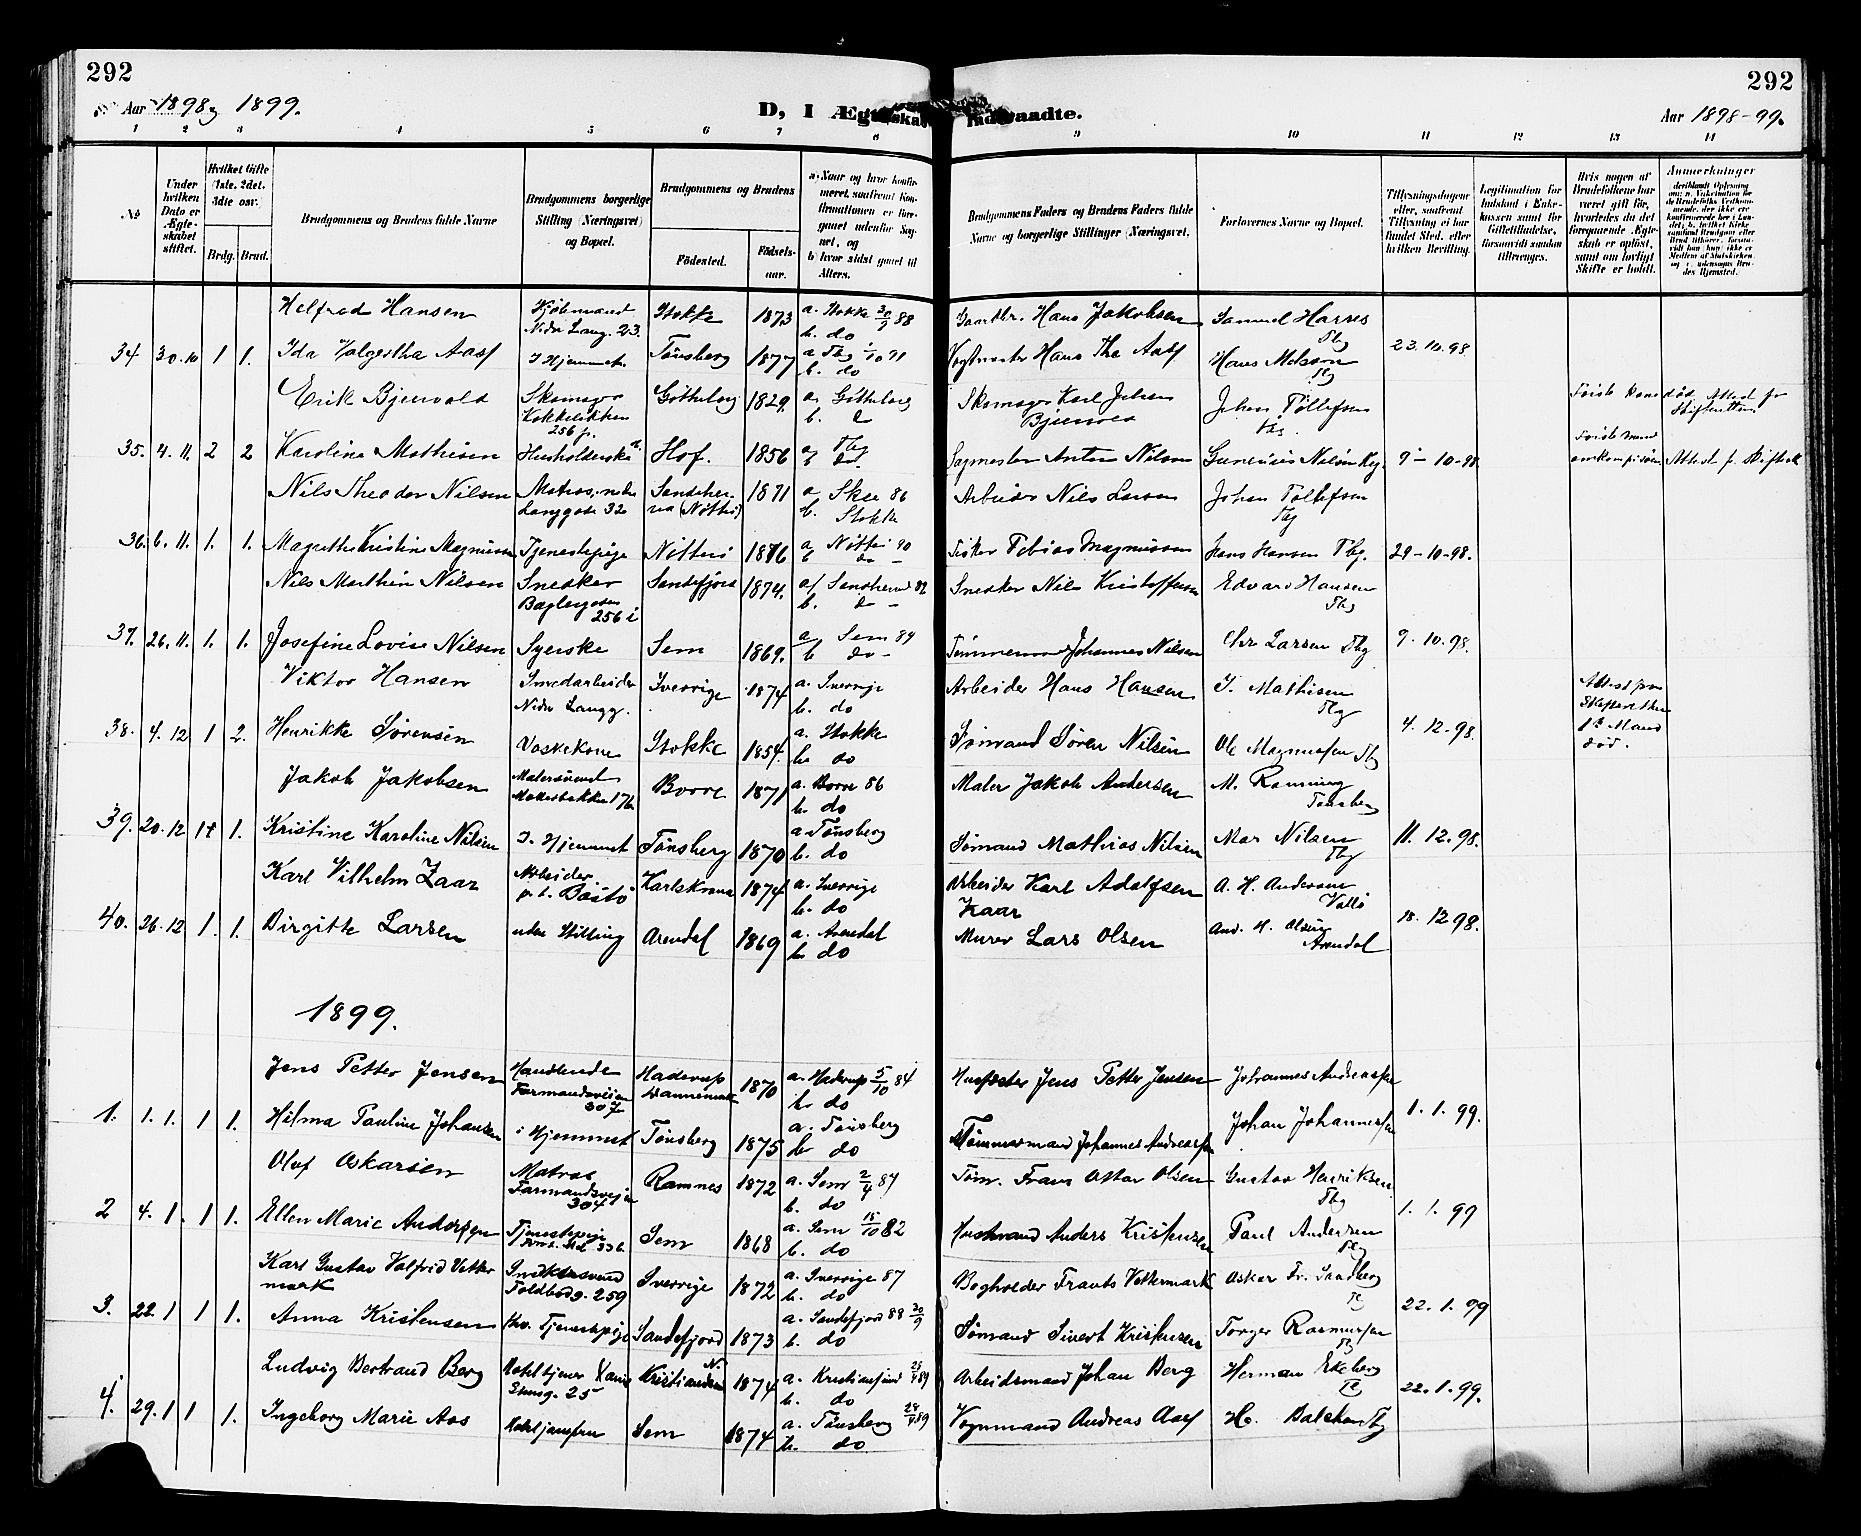 292
292
Aar 1898 og 1899.
D, I Ægteskab Indtraadte.
Aar 1898-99.
1 2 3 4 5 6 7 8 9 10 11 12 13 14
No
Under hvilken Dato er Ægteskabet stiftet.
Hvilket Gifte (1ste, 2det, 3die osv.)
Brdg. Brud.
Brudgommens og Brudens fulde Navne
Brudgommens borgerlige Stilling (Næringsvei) og Bopæl.
Brudgommens og Brudens
Fødested.
Fødselsaar.
a. Naar og hvor konfirmeret, saafremt Konfirmationen er foregaaet udenfor Sognet, og
b. hvor sidst gaaet til Alters.
Brudgommens Faders og Brudens Faders fulde Navne og borgerlige Stillinger (Næringsvei).
Forlovernes Navne og Bopæl.
Tillysningsdagene eller, saafremt Tillysning ei har fundet Sted, efter hvilken Bevilling.
Legitimation for Indskud i Enkekassen samt for Giftetilladelse, forsaavidt saadan tiltrænges.
Hvis nogen af Brudefolkene har været gift før, hvorledes da det foregaaende Ægteskab er opløst, samt om lovligt Skifte er holdt.
Anmerkninger
Helfred Hansen Kjøbmand Nedre Lang. 23. Stokke 1873 a. Stokke 30/9 88 b. do Gaardbr. Hans Jakobsen Samuel Harses Tbg
34 30.10 1 1. Ida Holgertha Aass I Hjemmet. Tønsberg 1877 a Tbg 1/10 91 b. do Vogtmester Hans Tha Aass Hans Melsom Tbg 23.10.98
Erik Bjervald Skomager 256 f. Gøtheborg 1829. a. Gøtheborg b. Skomager Karl Johan Johan Tollefsen Tbg.
35. 4.11. 2 2 Karoline Mathisen Husholderske Hof. 1856 a Tbg b do. Sagmester Anton Nilsen Nilsen 9-10-98
Nils Theodor Nilsen Matros, nedre Langgade 32 1871 a Skee 86 b. Stokke Arbeider Nils Larsen Johan Tollefsen Tbg
36. 6.11. 1. 1. Magrethe Kristine Magnusen Tjenestepige Nøtterø 1876 a Nøtterø 90 b do - Fisker Tobias Magnussen Hans Hansen Tbg. 29-10-98.
Nils Marthin Nilsen Snedker Baglergaden 256 i Sandefjord 1874. a/ 82 b. Snedker Nils Kristoffersen Edvard Hansen Tbg
37. 26.11. 1. 1. Josefine Lovise Nilsen Syerske Sem 1869. a Sem 84 b do - Tømmermand Johannes Nilsen Chr Larsen Tbg 9.10.98.
Viktor Hansen Smedarbeider Nedre Langg. Sverrige 1874 a. Sverrige b. do Arbeider Hans Hansen I. Mathisen Tbg Attest fra Skifteretten
38. 4.12 1 2. Henrikke Sørensen Vaskekone Stokke 1854. a. Stokke b. do Sømand Søren Nilsen Ole Magnussen Tbg 4.12.98. 1ste Mand død.
Jakob Jakobsen Malersvend Møllerbakken 176 Borre 1871 a. Borre 86 b. do Maler Jakob Andersen M. Rønning Tønsberg
39. 20.12 1 1. Kristine Karoline Nilsen I. Hjemmet Tønsberg 1870 a Tønsberg b. do Sømand Mathias Nilsen Mar Nilsen Tbg 11.12.98.
Karl Vilhelm Kaar Arbeider p.t. Bastø Karlskrona 1874 a. Sverrige b. do Arbeider Karl Adolfsen Kaar A. H. Andersen Vallø
40. 26.12 1. 1. Birgitte Larsen uden Stilling Arendal 1869 a. Arendal b. do Murer Lars Olsen And. H. Olsen Arendal 18.12 98.
1899.
Jens Petter Jensen Handlende Farmandsveien 307 Haderup Dannemark 1870 a. Haderup 5/10 84 b. do Jens Petter Jensen Johannes Andreassen
1. 1.1. 1 1. Hilma Pauline Johansen i Hjemmet Tønsberg 1875 a. Tønsberg b do Tømmermand Johannes Andreassen Johan Johannessen 1.1.99.
Olaf Oskarsen Matros Farmandsveien 304 Ramnes 1872 a. Sem 2/4 87 b. do Tøm. Frans Oskar Olsen Gustav Henriksen Tbg
2 4.1. 1 1. Ellen Marie Andersen Tjenestepige Sem 1868 a. Sem 15/10 82 b. do Husmand Anders Kristensen Paul Andersen Tbg 1.1.99
Karl Gustav Valfrid Vettermark Snedkersvend Toldbodg. 259 Sverrige 1872 a. Sverrige 87 b. do Bogholder Frants Vettermark Oskar Fr. Sandberg T
3. 22.1 1 1. Anna Kristensen Tjenestepige Sandefjord 1873 a. Sandefjord 88 30/9 b. do Sømand Sivert Kristensen Torger Rasmussen Tbg 22.1.99
Ludvig Bertrand Berg Hoteltjener 25 Kristiansund N. 1874 a. Kristiansund 89 b. do Arbeidsmand Johan Berg Herman Ekeberg T
4. 29.1 1 1. Ingeborg Marie Aas Hoteljomfru Sem 1874 a. Tønsberg 89 b. do. Vognmand Andreas Aass H. Balchen Tbg 22.1.99.